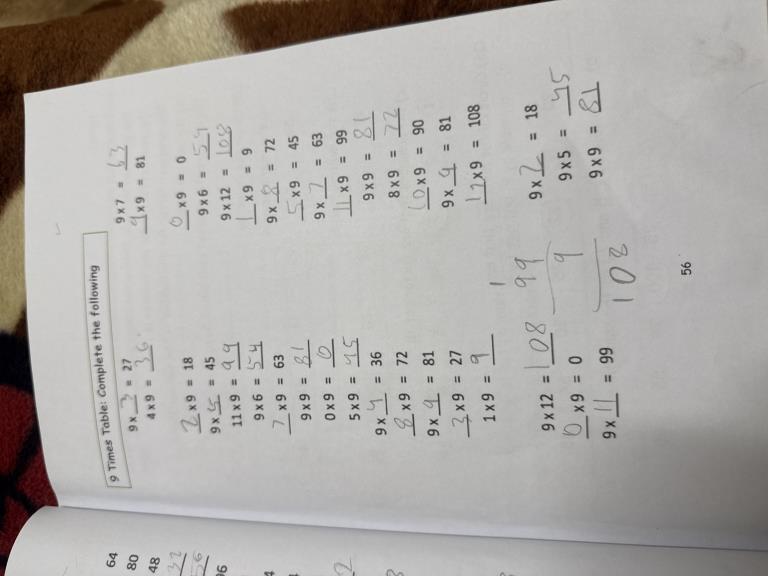 9 Times Table: Complete the following
9 x 3 = 27
4 x 9 = 36
2 x 9 = 18
9 x 5 = 45
11 x 9 = 99
9 x 6 = 54
7 x 9 = 63
9 x 9 = 81
0 x 9 = 0
5 x 9 = 45
9 x 4 = 36
8 x 9 = 72
9 x 9 = 81
3 x 9 = 27
1 x 9 = 9
9 x 12 = 108
0 x 9 = 0
9 x 11 = 99
9 x 7 = 63
9 x 9 = 81
0 x 9 = 0
9 x 6 = 54
9 x 12 = 108
1 x 9 = 9
9 x 8 = 72
5 x 9 = 45
9 x 7 = 63
11 x 9 = 99
9 x 9 = 81
8 x 9 = 72
10 x 9 = 90
9 x 9 = 81
12 x 9 = 108
9 x 2 = 18
9 x 5 = 45
9 x 9 = 81
1
99
9
108
56
64
80
48
32
56
96